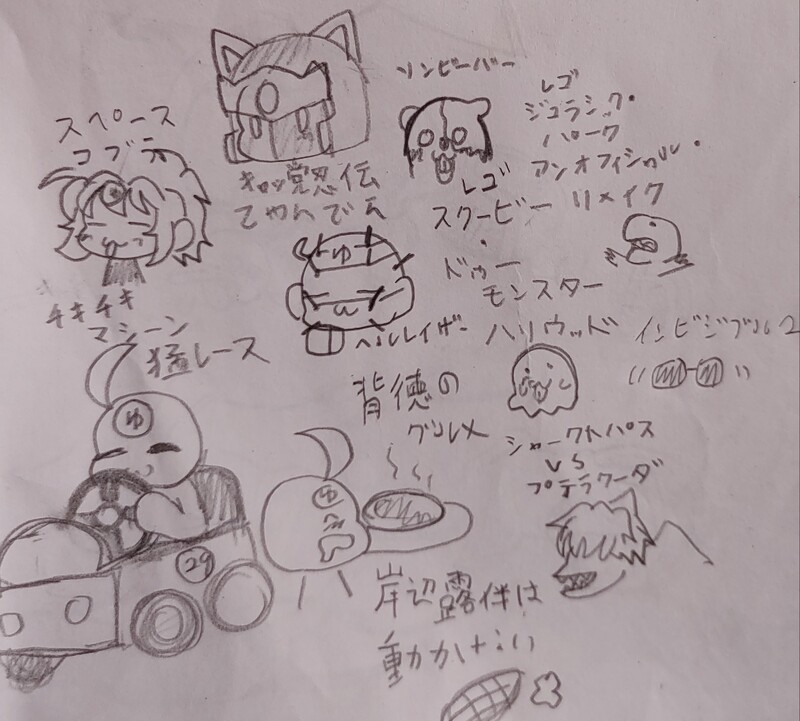 スペース
コブラ
キャッ党忍伝
てやんでえ
ゾンビーバー
レゴ
ジュラシック・
パーク
アンオフィシャル・
リメイク
レゴ
スクービー
・
ドゥー
モンスター
ハリウッド
ゆ
ヘルレイザー
インビジブル2
チキチキ
マシーン
猛レース
ゆ
29
背徳の
グルメ
ゆ
シャークトパス
VS
プテラクーダ
岸辺露伴は
動かない